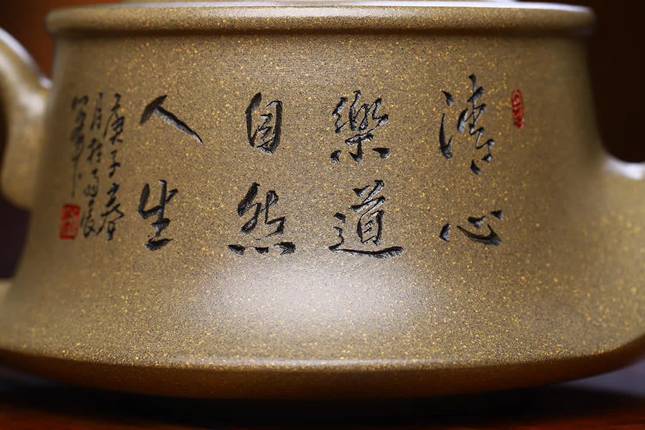 清心
樂道
自然
人生
庚子春